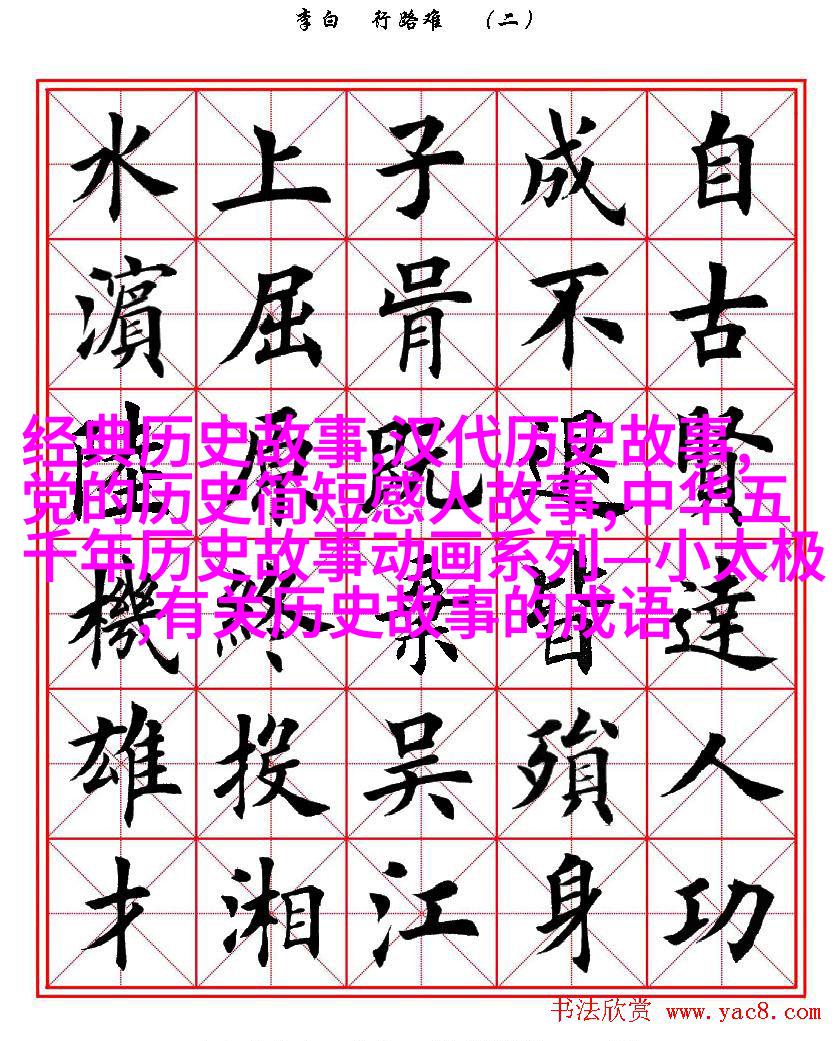 李白 行路难 （二）
自古賢達人功
成不退皆殞身
子胥既棄吴江
上屈原終投湘
水濱陸機雄才
经典历史故事,汉代历史故事,
党的历史简短感人故事,中华五
千年历史故事动画系列—小太极
,有关历史故事的成语
书法欣赏 www.yac8.com